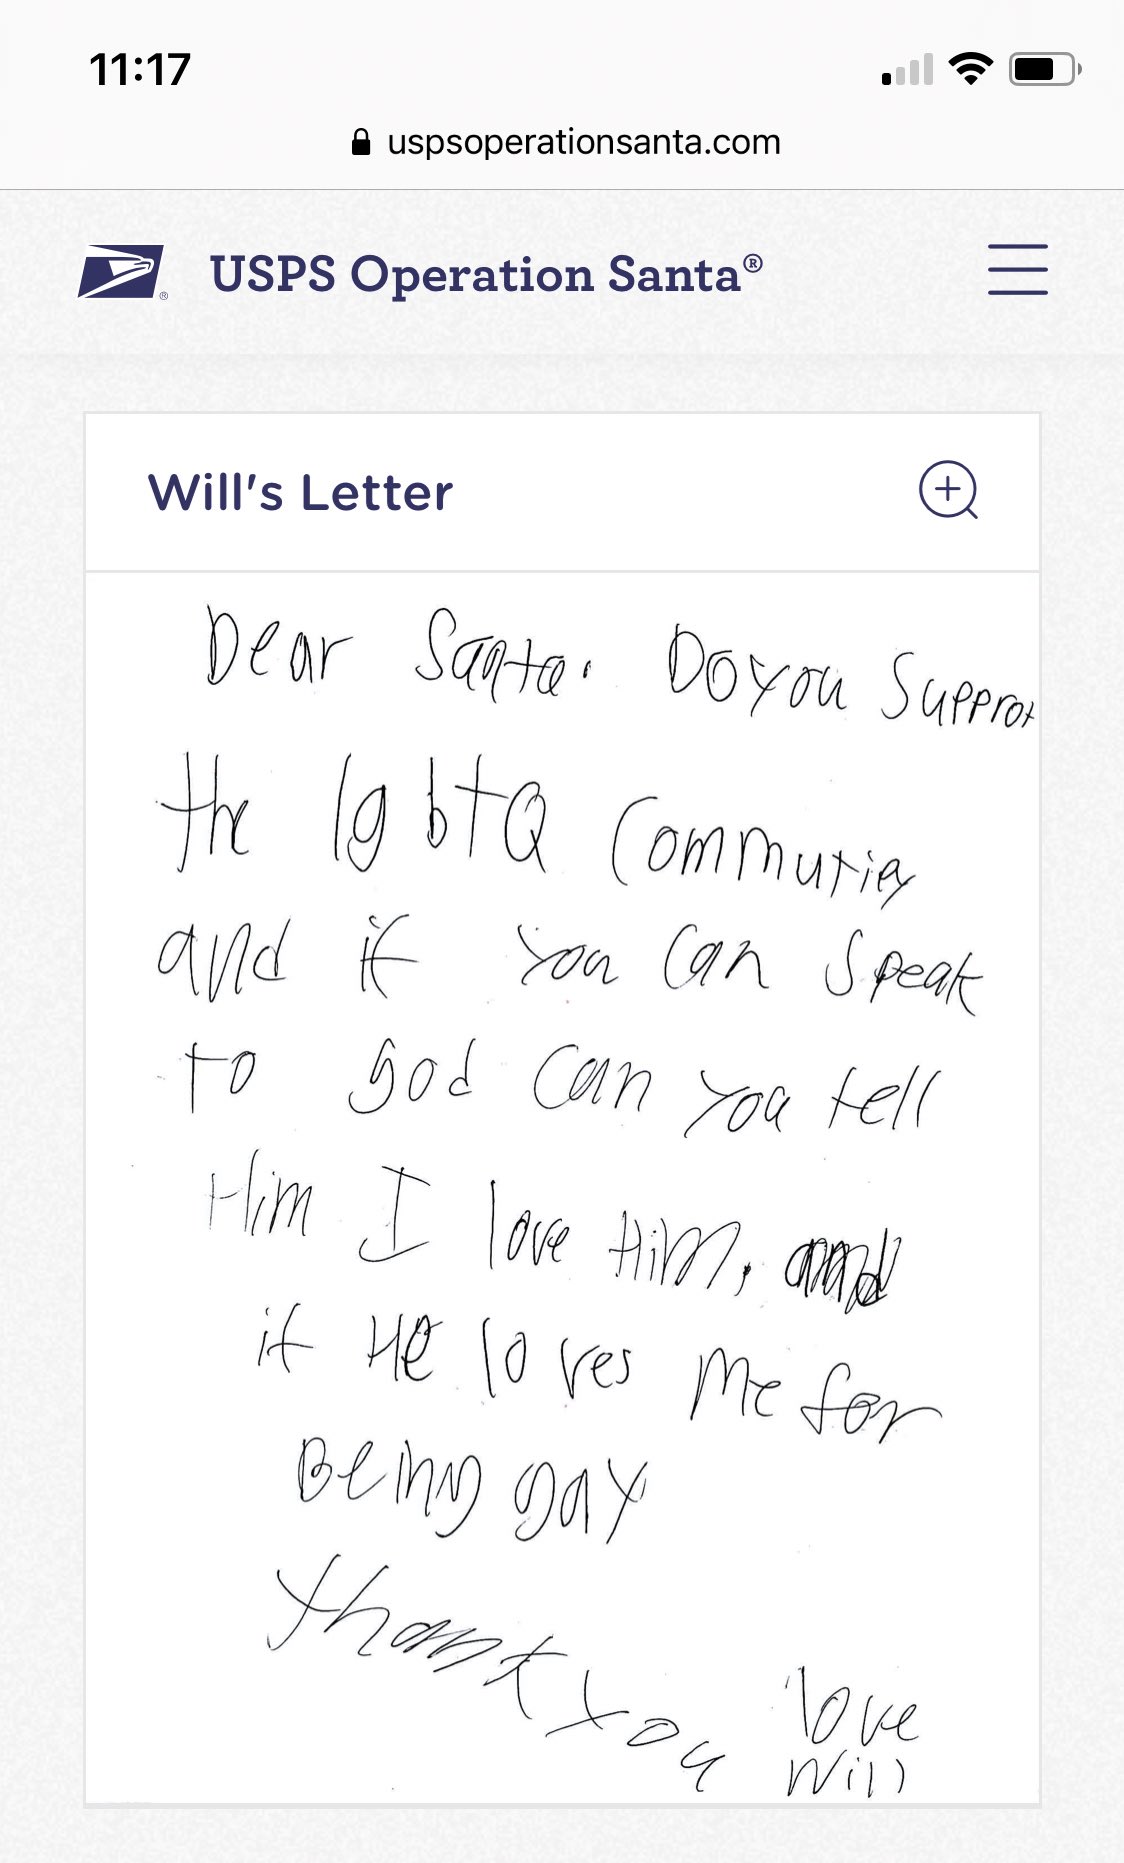 11:17
uspsoperationsanta.com
USPS Operation Santa®
Will's Letter
Dear Santa. Do you Supprot
the lgbtQ Commutiey
and if you Can Speak
to god can you tell
Him I love Him, and
if He loves Me for
Being gay
thank you love
Will